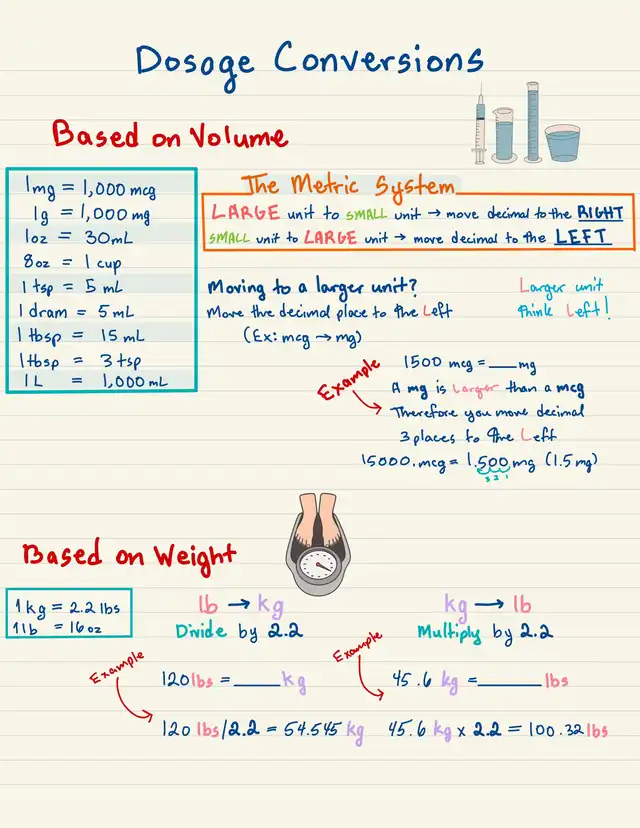 Dosage Conversions
Based on Volume
1mg = 1,000 mcg
1g = 1,000 mg
1oz = 30mL
8oz = 1 cup
1 tsp = 5 mL
1 dram = 5 mL
1 tbsp = 15 mL
1tbsp = 3 tsp
1 L = 1,000 mL
The Metric System
LARGE unit to SMALL unit → move decimal to the RIGHT
SMALL unit to LARGE unit → move decimal to the LEFT
Moving to a larger unit?
Move the decimal place to the Left
(Ex: mcg → mg)
Larger unit
think Left!
Example
1500 mcg = ____ mg
A mg is Larger than a mcg
Therefore you move decimal
3 places to the Left
15000.mcg = 1.500.mg (1.5 mg)
3 2 1
Based on Weight
1 kg = 2.2 lbs
1 lb = 16 oz
lb → kg
Divide by 2.2
Example
120 lbs = ____ kg
120 lbs/2.2 = 54.545 kg
kg → lb
Multiply by 2.2
Example
45.6 kg = ____ lbs
45.6 kg x 2.2 = 100.32 lbs